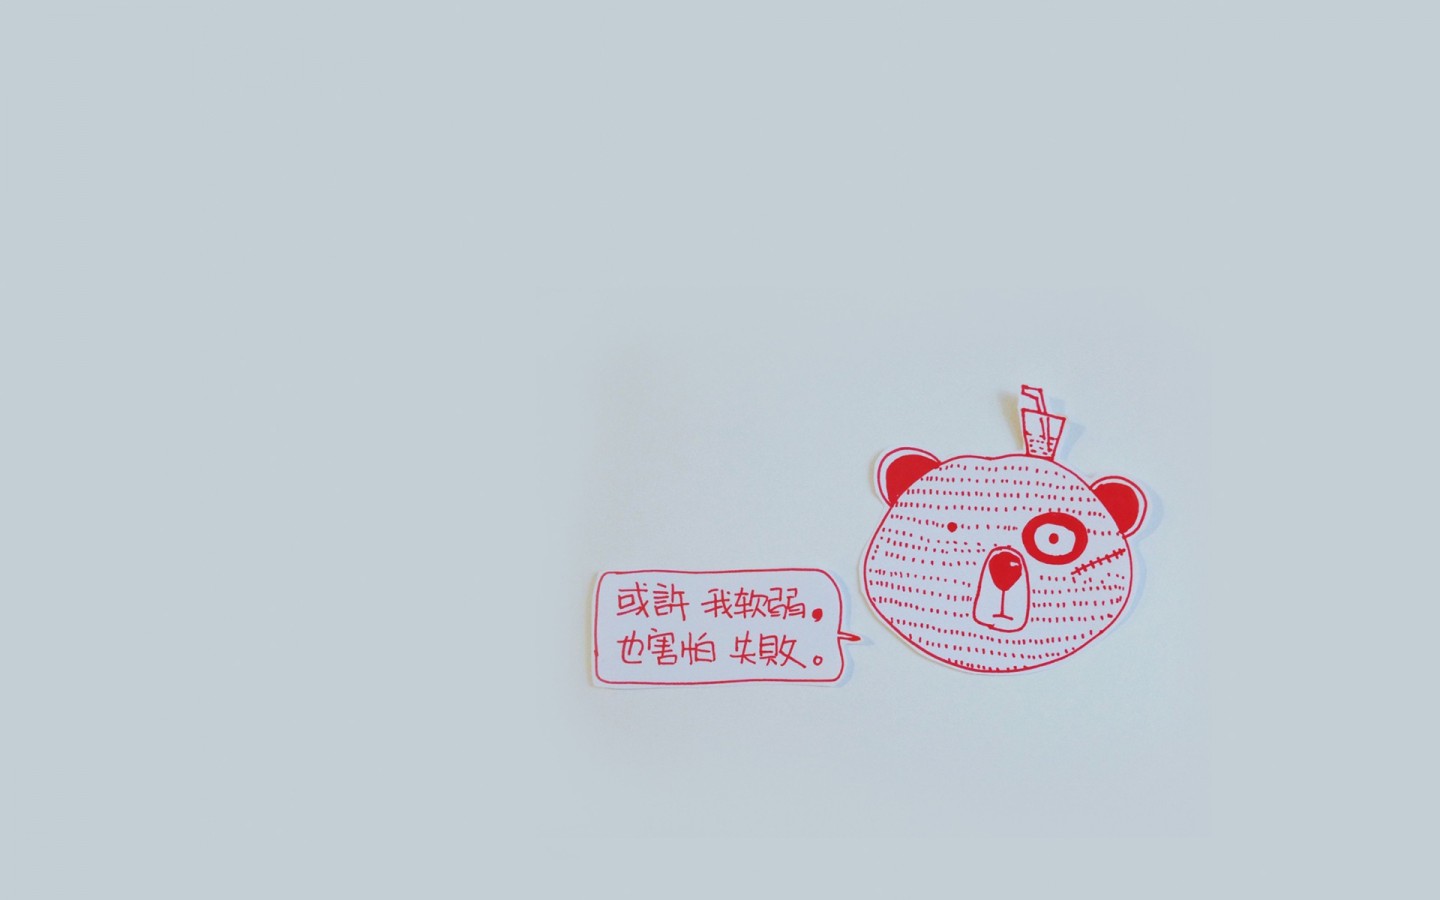 或許 我软弱，
也害怕 失敗。